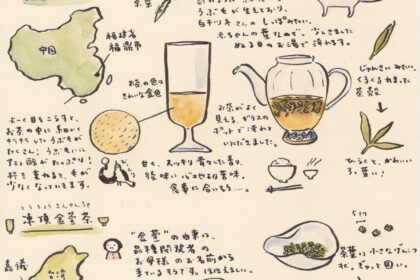 茶葉
うぶ毛が生えており、
白キツネさんの しっぽみたい。
赤ちゃんの葉なので、
ぬる目のお湯で淹れます。
中国
福建省
福鼎市
お茶の色は
きれいな金色
お茶がよく
見える、ガラスの
ポットで
いただきました。
じゅんさい みたい、
茶葉
ひらくと、かわい
よーく目をこらすと、
お茶の中に 細い
キラキラした うぶ毛が
たくさん! うぶ毛には
アミノ酸が たっぷり!
杯を重ねると、毛が
少なくなっていきます。
甘く、スッキリ 青々しい香り、
後味に 心地よい苦味。
食事に合いそう…。
とうちょうきんせんちゃ
凍頂金萱茶
嘉儀
台湾
"金萱"の由来は、
品種開発者の
お母様の お名前から
来ているそうです。ほほえましい。
茶葉は 小さな
状。ぎゅっと固い。